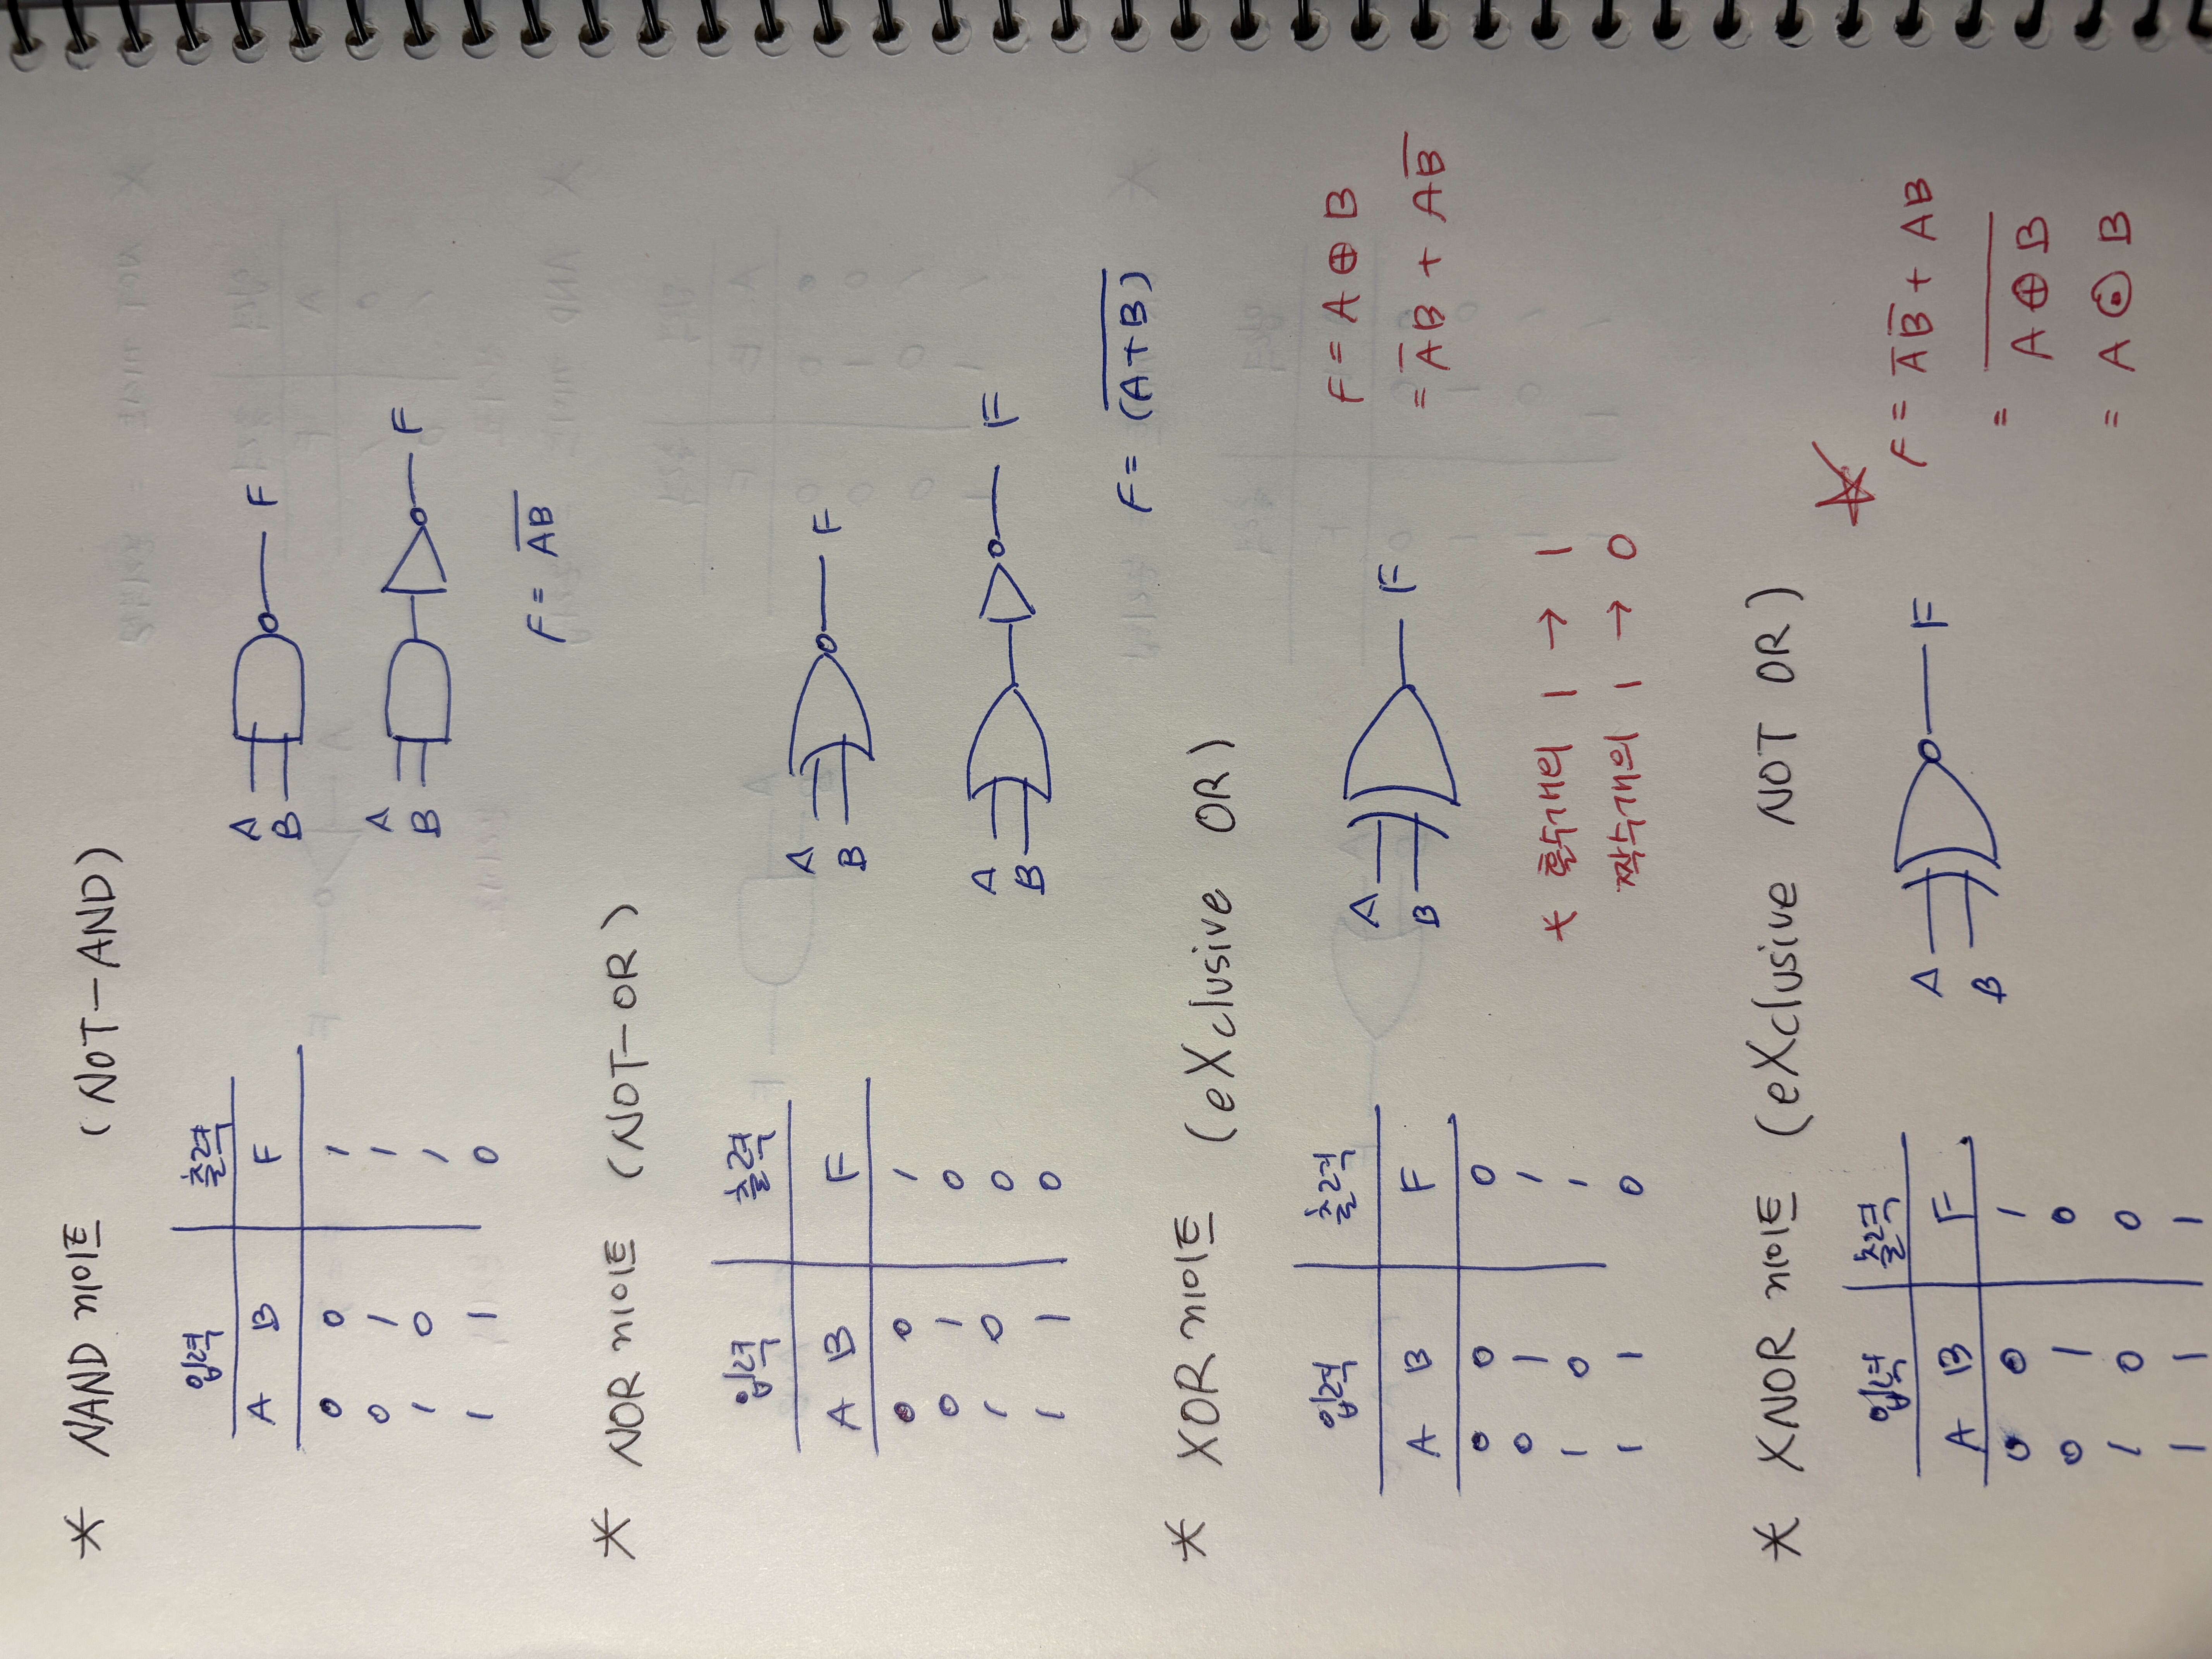 * NAND 게이트 (NOT-AND)
입력 출력
A B F
0 0 1
0 1 1
1 0 1
1 1 0
A
B
F
A
B
F
F = A̅B̅
* NOR 게이트 (NOT-OR)
입력 출력
A B F
0 0 1
0 1 0
1 0 0
1 1 0
A
B
F
A
B
F
F = (A̅+̅B̅)
* XOR 게이트 (eXclusive OR)
입력 출력
A B F
0 0 0
0 1 1
1 0 1
1 1 0
A
B
F
F = A ⊕ B
= A̅B + AB̅
* 홀수개의 1 → 1
짝수개의 1 → 0
* XNOR 게이트 (eXclusive NOT OR)
입력 출력
A B F
0 0 1
0 1 0
1 0 0
1 1 1
A
B
F
F = A̅B̅ + AB
= A̅ ⊕̅ B̅
= A ⊙ B